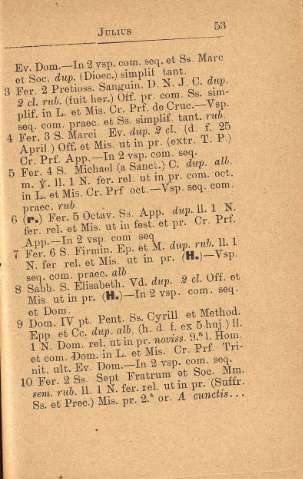 JULIUS 53
Ev. Dom.—In 2 vsp. com. seq. et Ss. Marc
et Soc. dup. (Dioec.) simplif tant.
3 Fer. 2 Pretioss. Sanguin. D. N. J. C. dup.
2 cl. rub. (fuit her.) Off. pr. com. Ss. sim-
plif. in L. et Mis. Cr. Prf. de Cruc.—Vsp.
seq. com. praec. et Ss. simplif. tant. rub.
4 Fer. 3 S. Marci Ev. dup. 2 cl. (d. f. 25
April ) Off. et Mis. ut in pr. (extr. T. P.)
Cr. Prf. App.—In 2 vsp. com. seq.
5 Fer. 4 S. Michael (a Sanct.) C. dup. alb.
m. ℣. ll. 1 N. fer. rel. ut in pr. com. oct.
in L. et Mis. Cr. Prf oct.—Vsp. seq. com.
praec. rub
6 (r.) Fer. 5 Octav. Ss. App. dup. ll. 1 N.
fer. rel. et Mis. ut in fest. et pr. Cr. Prf.
App.—In 2 vsp. com seq
7 Fer. 6 S. Firmin. Ep. et M. dup. rub. ll. 1
N. fer rel. et Mis. ut in pr. (H.)—Vsp.
seq. com. praec. alb
8 Sabb. S. Elisabeth. Vd. dup. 2 cl. Off. et
Mis. ut in pr. (H.)—In 2 vsp. com. seq.
et Dom.
9 Dom. IV pt. Pent. Ss. Cyrill et Method.
Epp. et Cc. dup. alb. (h. d. f. ex 5 huj.) ll.
1 N. Dom. rel. ut in pr. noviss. 9.ª l. Hom.
et com. Dom. in L. et Mis. Cr. Prf. Tri-
nit. ult. Ev. Dom.—In 2 vsp. com. seq.
10 Fer. 2 Ss. Sept Fratrum et Soc. Mm.
sem. rub. ll. 1 N. fer. rel. ut in pr. (Suffr.
Ss. et Prec.) Mis. pr. 2.ª or. A cunctis...